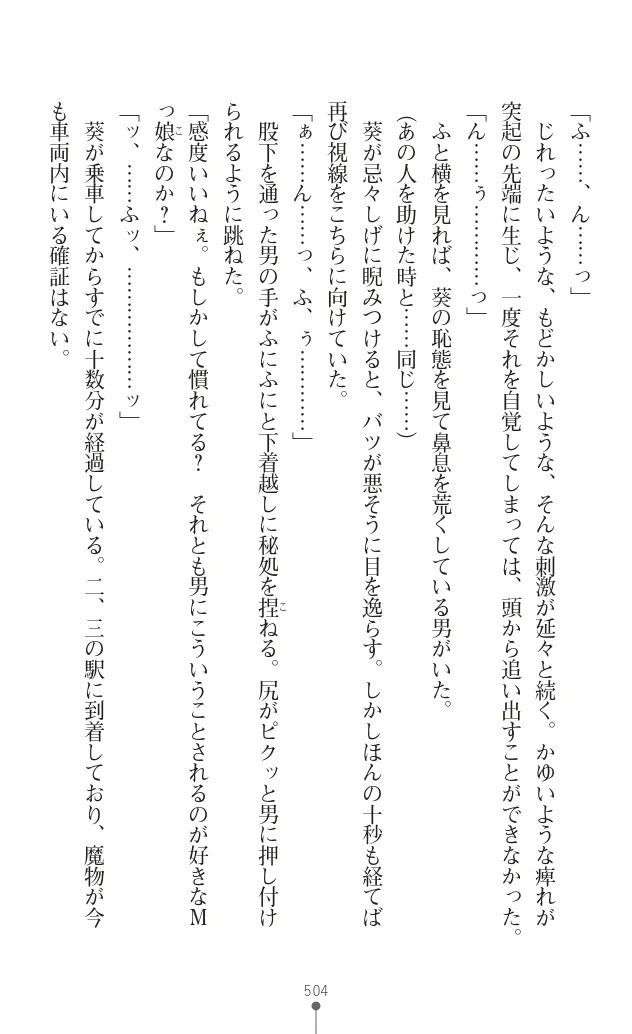 「ふ……、ん……っ」
じれったいような、もどかしいような、そんな刺激が延々と続く。かゆいような痺れが
突起の先端に生じ、一度それを自覚してしまっては、頭から追い出すことができなかった。
「ん……ぅ…………っ」
ふと横を見れば、葵の恥態を見て鼻息を荒くしている男がいた。
(あの人を助けた時と……同じ……)
葵が忌々しげに睨みつけると、バツが悪そうに目を逸らす。しかしほんの十秒も経てば
再び視線をこちらに向けていた。
「ぁ……ん……っ、ふ、ぅ…………」
股下を通った男の手がふにふにと下着越しに秘処を捏こねる。尻がピクッと男に押し付け
られるように跳ねた。
「感度いいねぇ。もしかして慣れてる？　それとも男にこういうことされるのが好きなM
っ娘こなのか？」
「ッ、……ふッ、………………ッ」
葵が乗車してからすでに十数分が経過している。二、三の駅に到着しており、魔物が今
も車両内にいる確証はない。
504